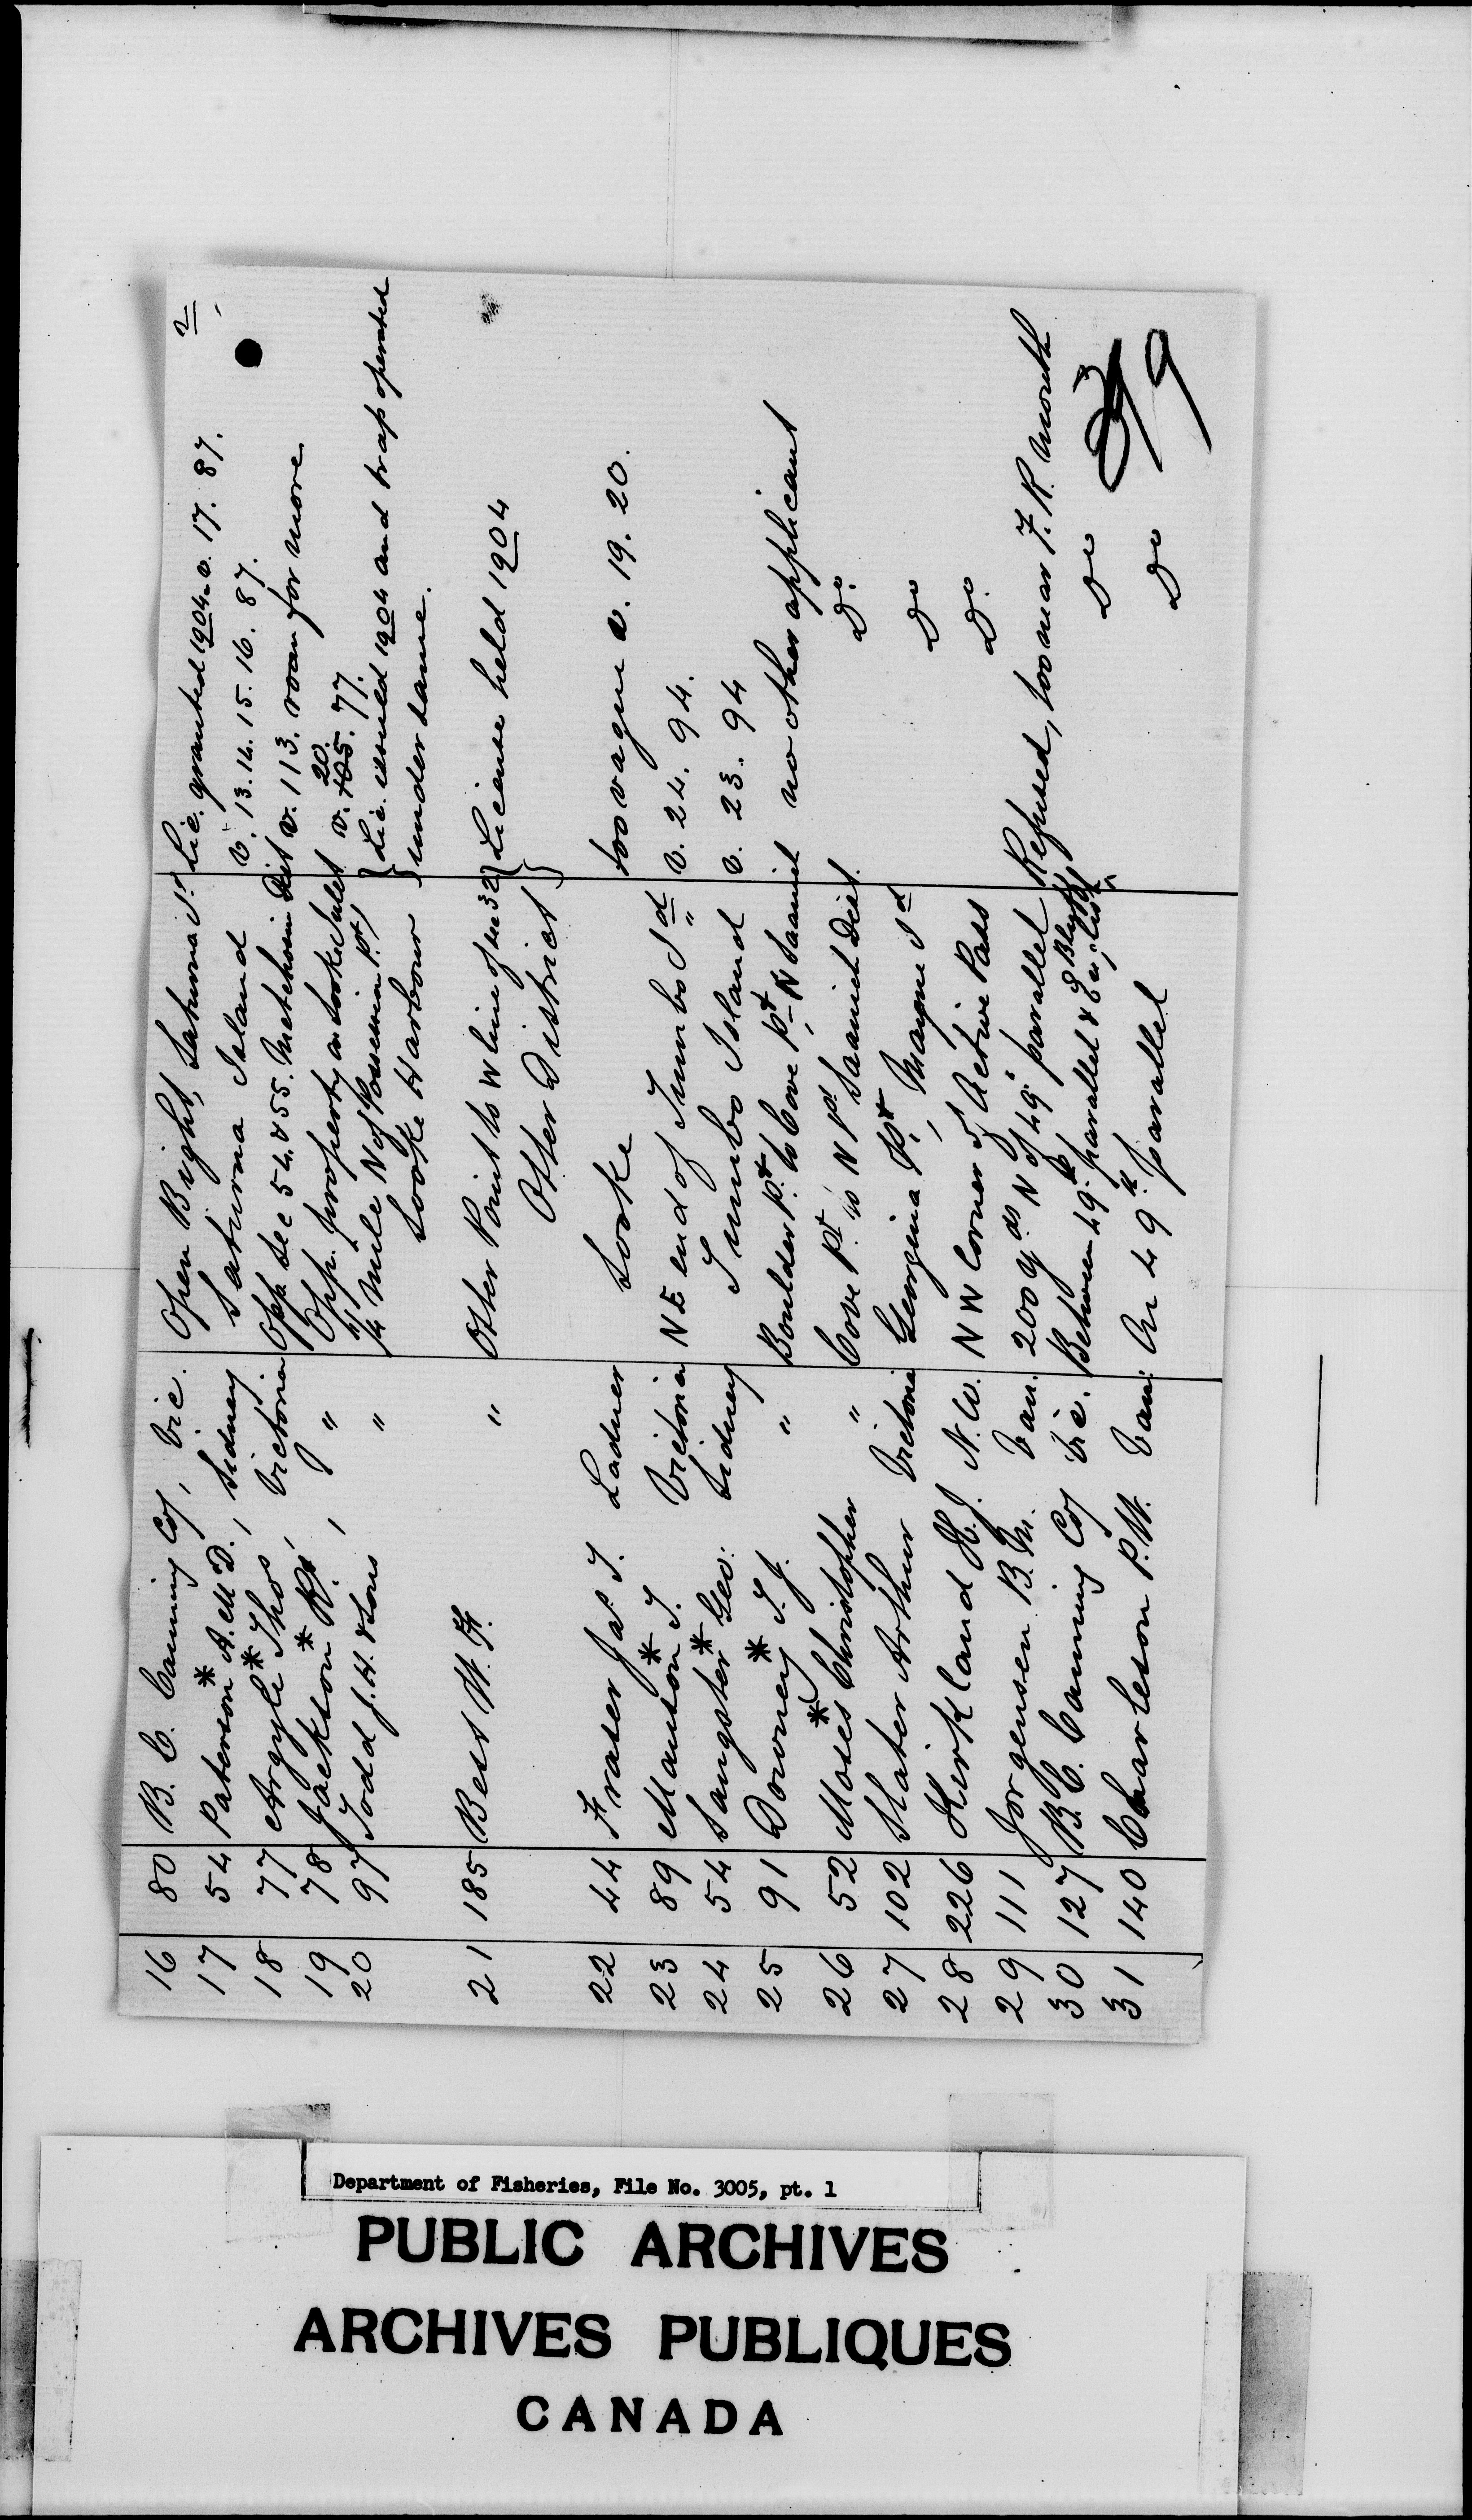 2
16 80 B. C. Canning Coy, Vic. Open Bight, Saturna Id. Lic. granted 1904. v. 17. 87.
17 54 Paterson * A. McD., Sidney Saturna Island v. 13. 14. 15. 16. 87.
18 77 Argyle * Thos, Victoria Opp. Sec 54 & 55. Metchosin Dist v. 113. room for more
19 78 Jackson * R, " Opp. property on Sooke Inlet v. 105. 20. 77.
20 97 Todd J. H. & Sons, " ¼ mile N of Possession Pt, } Lic. issued 1904 and trap operated
Sooke Harbour } under same.
21 185 Best W. F. " Otter Point to W line of sec 32 } License held 1904
Otter District }
22 44 Fraser Jas. T. Ladner Sooke too vague v. 19. 20.
23 89 Manson * T. Victoria N E end of Tumbo Id v. 24. 94.
24 54 Sangster * Geo. Sidney Tumbo Island v. 23. 94
25 91 Downey * T. J. " Boulder Pt. to Cove Pt. N Saanich no other applicant
26 52 Moses * Christopher " Cove Pt. to N Pt Saanich Dist. Do.
27 102 Slater Arthur Victoria Georgina Pt, Mayne Id Do
28 226 Kirkland H. J. N. W. N W Corner of Active Pass Do.
29 111 Jorgensen B. M. Van. 200 yds N of 49° parallel Refused, too near F. R. mouth
30 127 B. C. Canning Coy Vic. Between 49th parallel & Eng. list Bluff Do
31 140 Charleson P. W. Van. On 49th parallel Do
39
Department of Fisheries, File No. 3005, pt. 1
PUBLIC ARCHIVES
ARCHIVES PUBLIQUES
CANADA